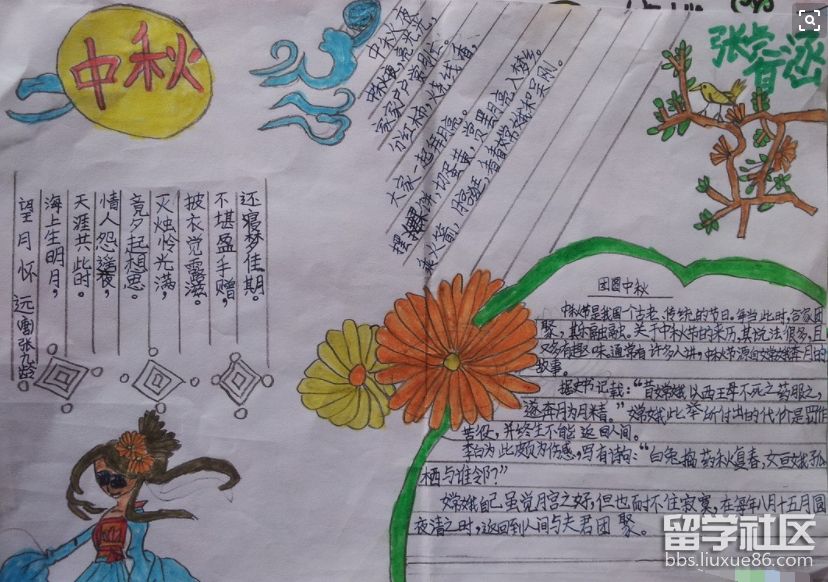 中秋
张
涵
中秋之夜
大家一起拜月亮。
摆摆果饼，切蛋黄，赏罢月亮入梦乡。
乘火箭，腾蛟，看看嫦娥和吴刚。
望月怀远 唐 张九龄
海上生明月，
天涯共此时。
情人怨遥夜，
竟夕起想思。
灭烛怜光满，
披衣觉露滋。
不堪盈手赠，
还寝梦佳期。
团圆中秋
中秋节是我国个古老、传统的节日。年当此时，合家团
聚，其乐融融。关于中秋节的来历，其说法很多，且
又多有趣味。通常有许多人讲，中秋节源自嫦娥奔月的
故事。
据史书记载：“昔嫦娥以西王母不死之药服之，
逐奔月为月精。”嫦娥此举所付出的代价是罚作
苦役，并终生不能返回人间。
李白为此颇为伤感，写有诗句：“白兔捣药秋复春，嫦娥孤
栖与谁邻？”
嫦娥自己虽觉月宫之好，但也耐不住寂寞，在每年八月十五月圆
夜清之时，返回到人间与夫君团聚。
留学社区
bbs.liuxue86.com